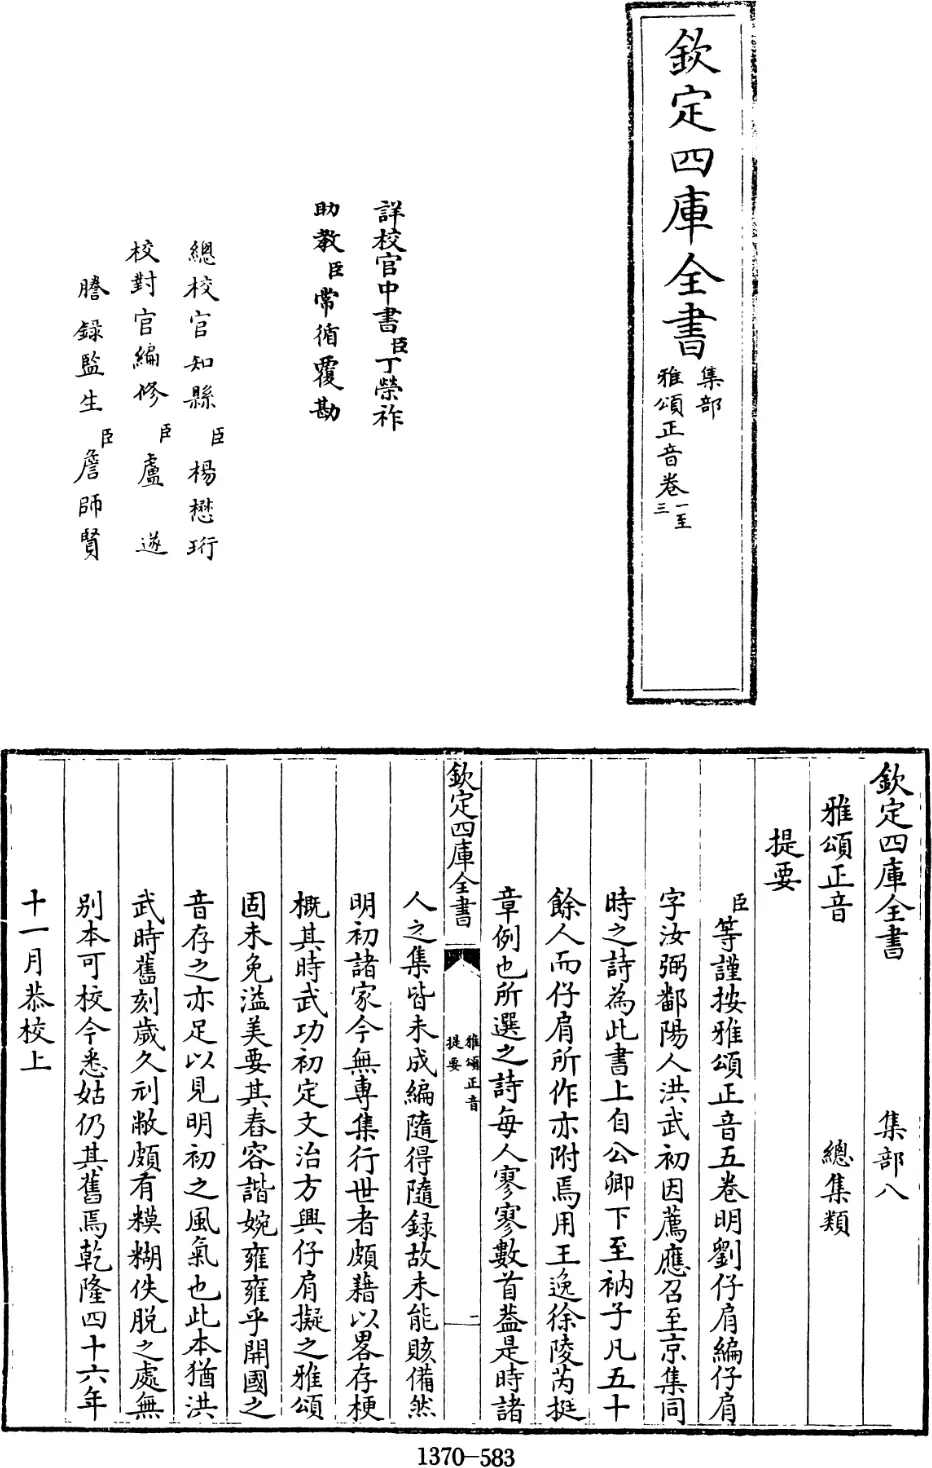 欽定四庫全書
集部
雅頌正音卷一至三
詳校官中書臣丁榮祚
助教臣常循覆勘
總校官知縣臣楊懋珩
校對官編修臣盧遂
謄錄監生臣詹師賢
欽定四庫全書 集部八
雅頌正音 總集類
提要
臣等謹按雅頌正音五卷明劉仔肩編仔肩
字汝弼鄱陽人洪武初因薦應召至京集同
時之詩為此書上自公卿下至衲子凡五十
餘人而仔肩所作亦附焉用王逸徐陵芮挺
章例也所選之詩每人寥寥數首葢是時諸
欽定四庫全書
雅頌正音
提要
二
人之集皆未成編隨得隨録故未能賅備然
明初諸家今無專集行世者頗藉以畧存梗
概其時武功初定文治方興仔肩擬之雅頌
固未免溢美要其舂容諧婉雍雍乎開國之
音存之亦足以見明初之風氣也此本猶洪
武時舊刻歲久刓敝頗有糢糊佚脱之處無
别本可校今悉姑仍其舊焉乾隆四十六年
十一月恭校上
1370—583